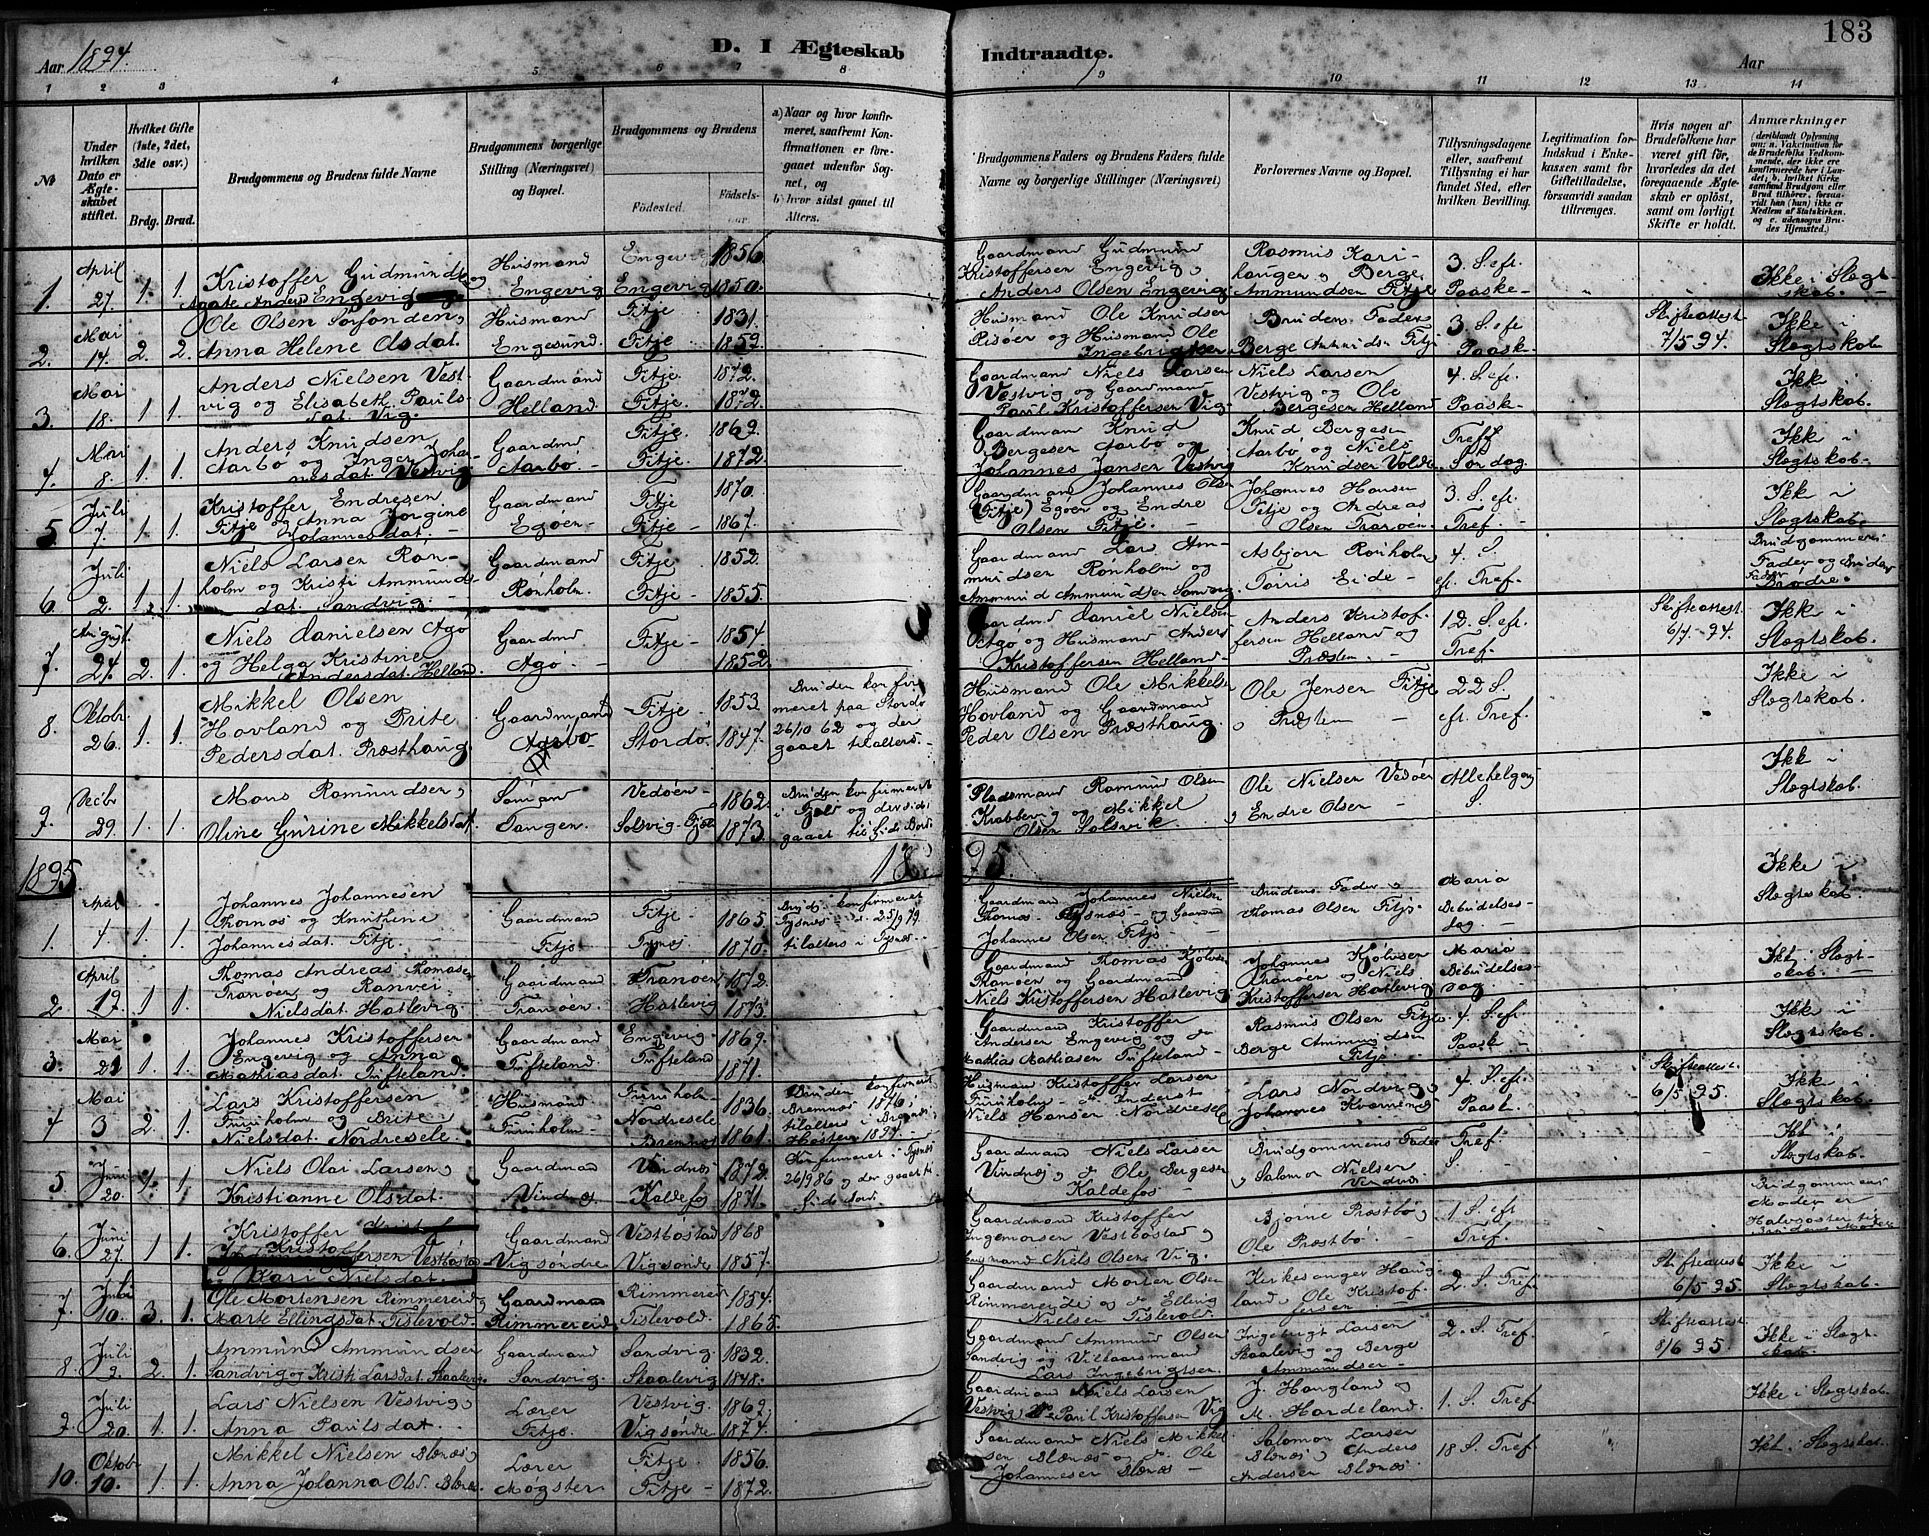 183
Aar 1894.
D. I Ægteskab Indtraadte.
Aar
1 2 3 4 5 6 7 8 9 10 11 12 13 14
No
Under hvilken Dato er Ægteskabet stiftet.
Hvilket Gifte (1ste, 2det, 3die osv.)
Brdg. Brud.
Brudgommens og Brudens fulde Navne
Brudgommens borgerlige Stilling (Næringsvei) og Bopæl.
Brudgommens og Brudens
Födested.
Födselsaar.
a) Naar og hvor konfirmeret, saafremt Konfirmationen er foregaaet udenfor Sognet, og
b) hvor sidst gaaet til Alters.
Brudgommens Faders og Brudens Faders fulde Navne og borgerlige Stillinger (Næringsvei)
Forlovernes Navne og Bopæl.
Tillysningsdagene eller, saafremt Tillysning ei har fundet Sted, efter hvilken Bevilling.
Legitimation for Indskud i Enkekassen samt for Giftetilladelse, forsaavidt saadan tiltrænges.
Hvis nogen af Brudefolkene har været gift för, hvorledes da det foregaaende Ægteskab er oplöst, samt om lovligt Skifte er holdt.
Anmærkninger
(deriblandt Oplysning om: a. Vakcination for de Brudefolks Vedkommende, der ikke ere konfirmerede her i Landet, b. hvilket Kirkesamfund Brudgom eller Brud tilhörer, forsaavidt han (hun) ikke er Medlem af Statskirken, og c. udensogns Brudes Hjemsted.)
1. April 27. 1. 1. Kristoffer Gudmundsen og Husmand Engevig 1856 Gaardmand Gudmund Kristoffersen Engevig, Rasmus Kari- 3. S. eft.
Agate Anders Engevig Engevig Engevig 1850. Anders Olsen Engevig Ammundsen Fitje Paaske- Ikke i Slægtskab.
2. Mai 14. 2. 2. Ole Olsen Sørfonden, Husmand Fitje 1831. Husmand Ole Knudsen Brudens Fader 3. S. eft Skifteattest Ikke i
Anna Helene Olsdat. Engesund. Fitje. 1859. Risöer og Husmand Ole Ingebrigtsen Berge Amunds. Fitje Paask- 7/5 94. Slægtskab
3. Mai 18. 1. 1. Anders Nielsen Vest- Gaardmand Fitje. 1872. Gaardmand Niels Larsen Niels Larsen 4. S. eft. Ikke i
vig og Elisabeth Pauls- Helland. Fitje. 1872. Vestvig og Gaardmand Vestvig og Ole Paask- Slægtskab.
dat Vig. Paul Kristoffersen Vig. Bergesen Helland
4. Mai 8. 1. 1. Anders Knudsen Gaardmd Fitje. 1869. Gaardmand Knud Knud Bergesen Treff Ikke i
Aarbø og Inger Johan- Aarbø. Fitje. 1872. Bergesen Aarbø og Aarbø og Niels Søndag. Slægtskab-
nesdat Vestvig Johannes Jansen Vestvig Knudsen Volde.
5. Juli 7. 1. 1. Kristoffer Endresen Gaardmand Fitje 1870. Gaardmand Johannes Olsen Johannes Hansen 3. S. eft. Ikke i
Fitje og Anna Jorgine Egøen. Fitje 1867. (Fitje) Egøen og Endre Fitje og Andreas Tref. Slægtskab.
Johannesdat. Olsen Fitje. Olsen Tranöen.
6. Juli 2. 1. 1. Niels Larsen Rön- Gaardmand Fitje. 1852. Gaardmand Lars Am- Asbjørn Rönholm 4. S. Brudgommens
holm og Kristi Ammunds- Rønholm. Fitje. 1855. mundsen Rönholm og Torris Eide eft. Tref. Fader og Brudens Fader
dat. Sandvig. Ammund Ammundsen Sandvig Brødre.
7. August 24. 2. 1. Niels Danielsen Agö Gaardmd Fitje 1854 Gaardmd Daniel Nielsen Anders Kristof- 12. S. eft. Skifteattest Ikke i
og Helga Kristine Agö 1852. Agö og Husmand Anders fersen Helland og Tref. 6/7-94 Slægtskab.
Andersdat. Helland Kristoffersen Helland- Præsten.
8. Oktobr 26. 1. 1. Mikkel Olsen Gaardmand Fitje. 1853. Bruden konfir- Husmand Ole Mikkelsen Ole Jensen Fitje 22 S. Ikke i
Hovland og Brite Stordö. 1847. meret paa Stordø Hovland og Gaardmand Præsten eft. Tref. Slægtskab.
Pedersdat. Præsthaug. 26/10 62 og der gaaet tilalters. Peder Olsen Præsthaug.
9. Decbr 29. 1. 1. Mons Romundsen, Sömand Vedöen. 1862. Bruden konfirmeret Pladsmand Romund Olsen Ole Nielsen Vedöen Allehelgens Ikke i
Oline Gurine Mikkelsdat. Tangen. Solsvig-Fjeld 1873. i Fjeld og der sidst gaaet til Guds Bord. Krabbevig og Mikkel Olsen Solsvik , Endre Olsen S. Slægtskab.
1895. 1895.
1. April 4. 1. 1. Johannes Johannesen Gaardmand Fitje 1865. Brud. konfirmeret Gaardmand Johannes Nielsen Brudens Fader, Maria Ikke i
Thornæs og Knuthine Fitje. Tysnes 1870. Tysnæs 25/9 Thornæs- Tysnæs- og Gaardmand Thomas Olsen Fitje. Bebudelses- Slægtskab.
Johannesdat. Fitje tilalters i Tysnæs. Johannes Olsen Fitje dag
2. April 19 1 1 Thomas Andreas Thomasen Gaardmand Tranöen 1872. Gaardmand Thomas Johannes Maria Ikk. i Slægt-
Tranöen og Ranvei Tranöen. Hatlevig 1873. Tranöen og Gaardmand Tranöen og Niels Bebudelses- skab.
Nielsdat Hatlevig Niels Kristoffersen Hatlevig Kristoffersen Hatlevig dag
3. Mai 21 1. 1. Johannes Kristoffersen Gaardmand Engevig 1869. Gaardmand Kristoffer Rasmus Olsen Fitje 4. S. eft Ikke i
Engevig og Anna Tufteland. Tufteland 1871. Andersen Engevig og Berge Ammundsen Paask Slægtskab.
Mathiasdat. Tufteland. Mathias Mathiasen Tufteland Fitje
4 Mai 3 2. 1. Lars Kristoffersen Husmand Furuholm 1836. Bruden konfirmeret Husmand Kristoffer Larsen Lars Nordvig, 4. S. eft. Skifteattest Ikke i
Furuholm og Brite Furuholm. Nordresele 1861. Bremnæs 1876, Furuholm Johannes Paask. 6/5 95. Slægtskab.
Nielsdat. Nordresele. Bremnes tilalters i Bremnæs Høsten 1894. Niels Hansen Nordresele
5 Juni 20. 1. 1. Niels Olai Larsen, Gaardmand Vindnæs 1872. Konfirmeret i Tysnæs Gaardmand Niels Larsen Brudgommens Fader Tref. Ikk. i
Kristianne Olsdat. Vindnæs Kaldefos 1871. 26/9 86 og der gaaet til Guds Bord. Vindnæs, Ole Bergesen Kaldefos , Salomon Nielsen Vindnæs S. Slægtskab.
6. Juni 27. 1 1. Kristoffer Gaardmand Vestbøstad 1868 Gaardmand Kristoffer Bjørne Præstbø, 1 S. eft Brudgommens
Kristoffersen Vestbøstad Vigsöndre Vigsönde 1857. Ingemorsen Vestbøstad, Ole Præstbø. Tref. Moder er
Kari Nielsdat. Niels Olsen Vig. Halvsøster til
7. Juli 10. 3. 1. Ole Mortensen Rimmereid, Gaardmand Rimmereid 1854. Gaardmand Morten Olsen Kirkesanger Haug- 2. S. Tref. Skifteattest Ikke i
Marte Ellingsdat. Tislevold Rimmereid. Tislevold. 1865. Rimmereide og Elling Nielsen Tislevold. land, Ole Kristof- fersen 6/5 95. Slægtskab.
8. Juli 9. 2. 1. Ammund Ammundsen Gaardmand Sandvig. 1832. Gaardmand Ammund Olsen Ingebrigt Larsen 2. S. Tref. Skifteattest Ikke i Slægt-
Sandvig og Kristi Larsdat. Skaalevig Sandvig. Skaalevig 1848. Sandvig og Lars Ingebrigtsen Skaalevig og Berge Ammundsen 8/6 95. skab.
9. Juli 20. 1. 1. Lars Nielsen Vestvig, Lærer Vestvig. 1869. Gaardmand Niels Larsen J. Haugland og 1. S. Tref. Ikke i Slægtskab.
Anna Paulsdat. Fitje. Vigsöndre 1874. Vestvig, Paul Kristoffersen Vig M. Hardeland.
10. Oktobr 10. 1. 1. Mikkel Nielsen Slænæs, Lærer Fitje. 1856. Gaardmand Niels Mikkel- Salomon Larsen 18. S. Tref. Ikk. i Slægtskab.
Anna Johanna Olsd. Møgster Fitje 1872. sen Slænæs og Ole Johannesen Slænæs Slænæs, Anders Andersen Slænæs.